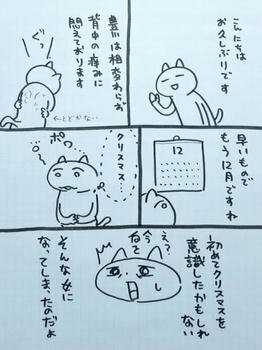 こんにちは
お久しぶりです
豊川は相変わらず
背中の痛みに
悶えております
ぐっ
←とどかない
早いもので
もう12月ですわ
12
クリスマス…
ポワ
初めてクリスマスを
意識したかもしれ
ない
え?
今
そんな女に
なってしまったのだよ